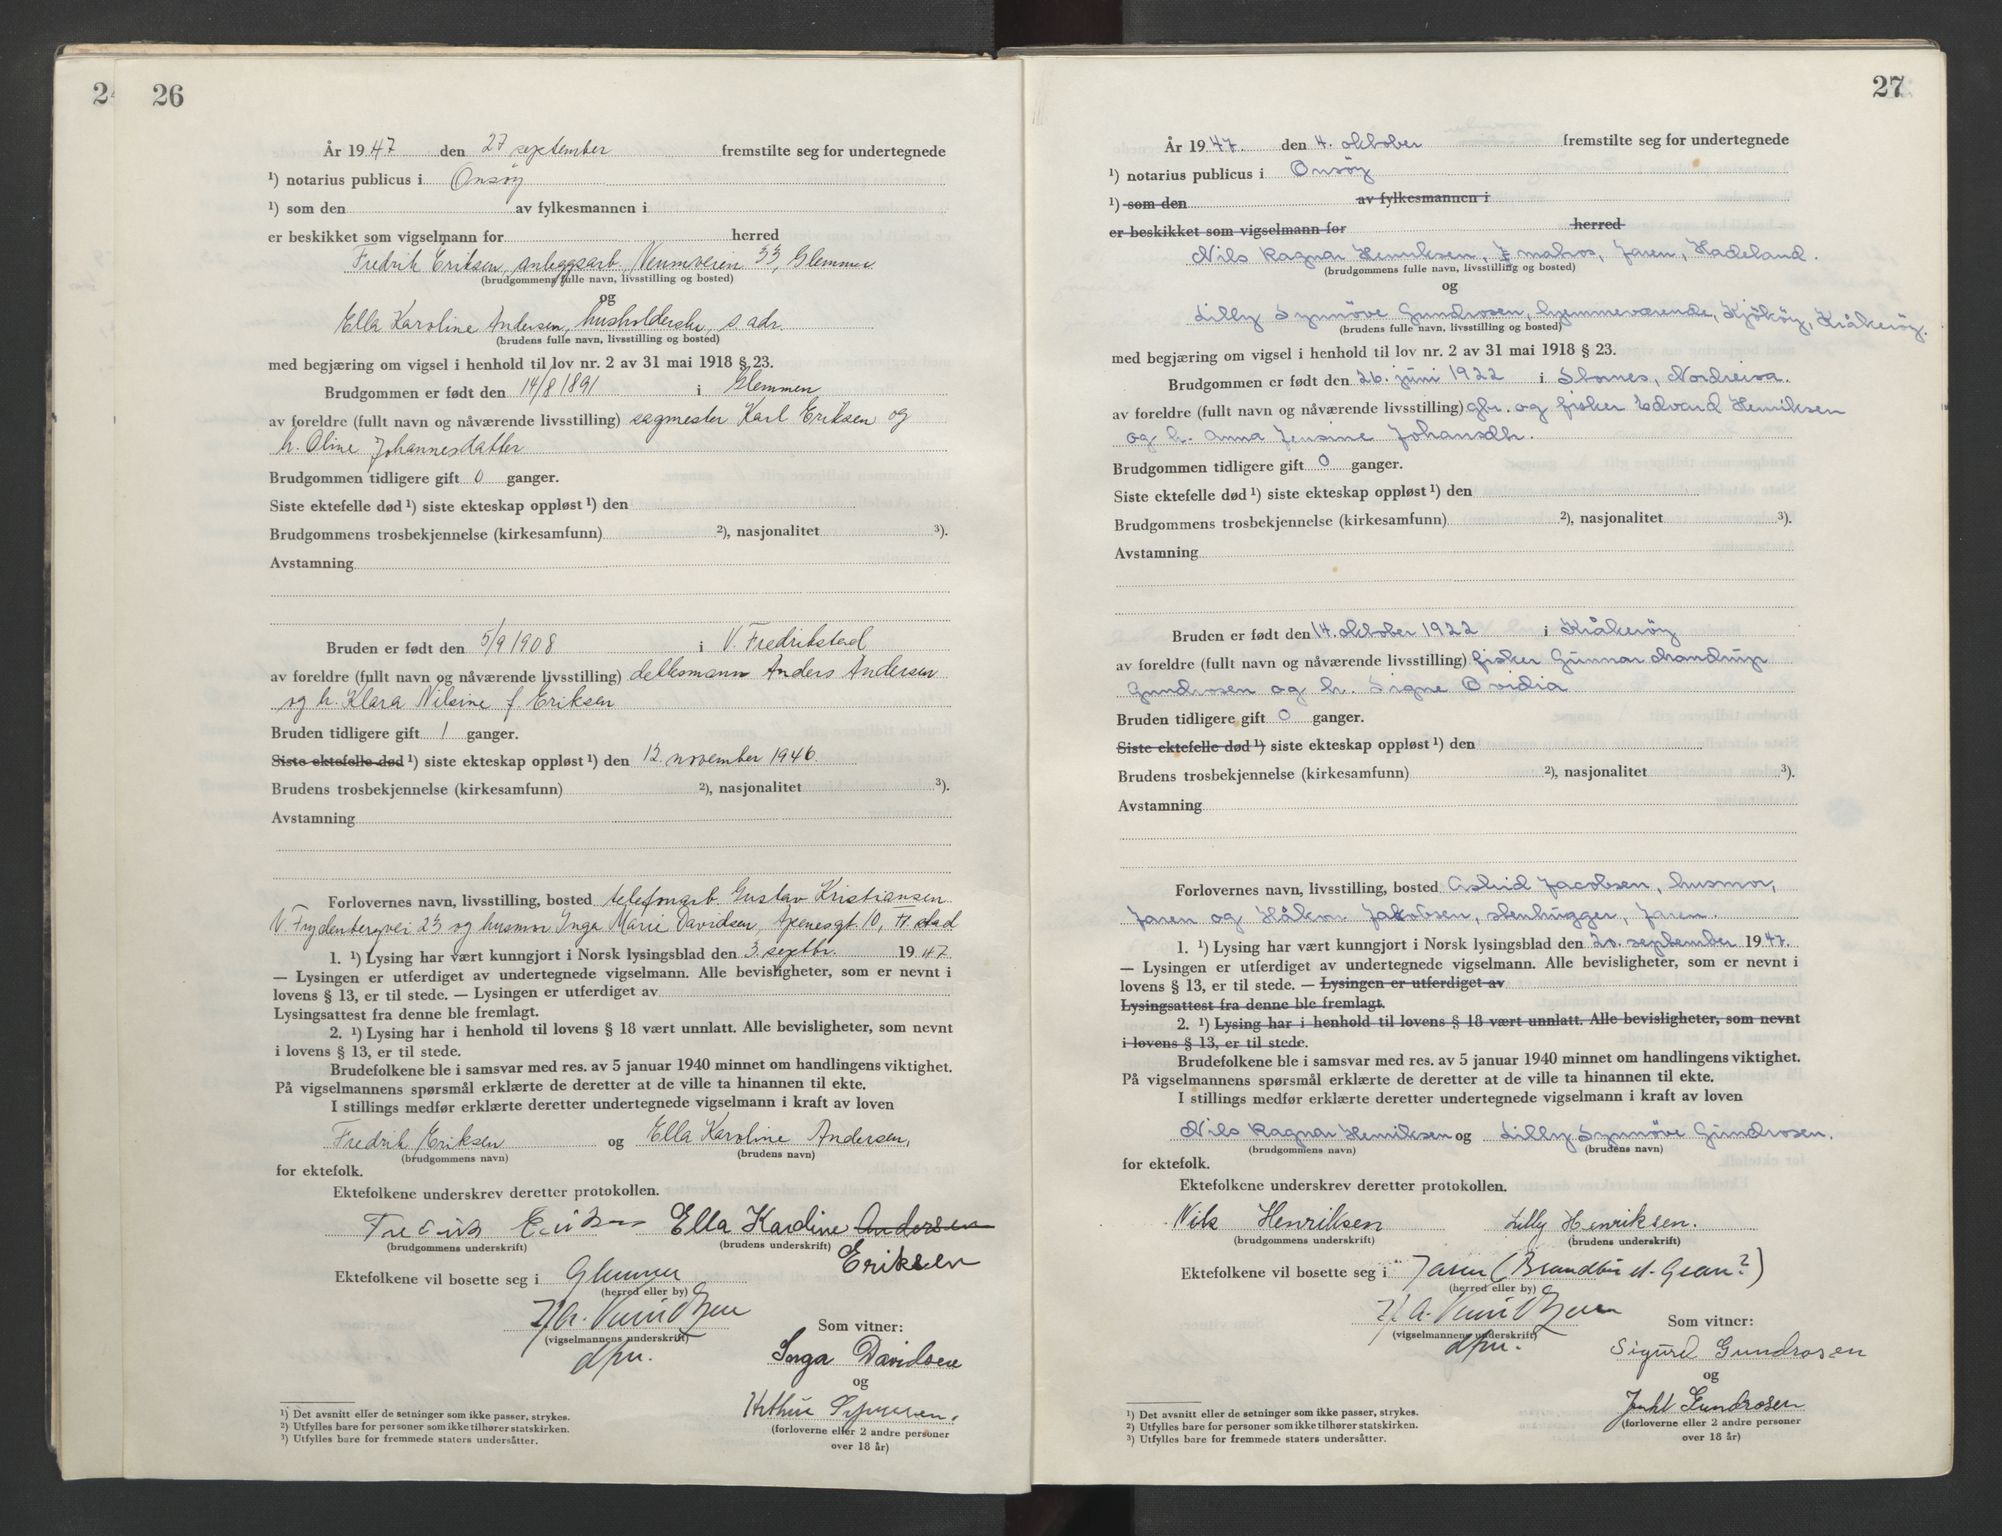 24
26
År 1947 den 27 september fremstilte seg for undertegnede
¹) notarius publicus i Onsøy
¹) som den av fylkesmannen i
er beskikket som vigselmann for herred
Fredrik Eriksen, anleggsarb. Veumveien 33, Glemmen
(brudgommens fulle navn, livsstilling og bosted)
og
Ella Karoline Andersen, husholderske, s. adr.
(brudens fulle navn, livsstilling og bosted)
med begjæring om vigsel i henhold til lov nr. 2 av 31 mai 1918 § 23.
Brudgommen er født den 14/8 1891 i Glemmen
av foreldre (fullt navn og nåværende livsstilling) sagmester Karl Eriksen og
h. Oline Johannesdatter
Brudgommen tidligere gift 0 ganger.
Siste ektefelle død ¹) siste ekteskap oppløst ¹) den
Brudgommens trosbekjennelse (kirkesamfunn) ²), nasjonalitet ³).
Avstamning
Bruden er født den 5/9 1908 i V. Fredrikstad
av foreldre (fullt navn og nåværende livsstilling) dekksmann Anders Andersen
og h. Klara Nilsine f. Eriksen
Bruden tidligere gift 1 ganger.
Siste ektefelle død ¹) siste ekteskap oppløst ¹) den 12. november 1946.
Brudens trosbekjennelse (kirkesamfunn) ²), nasjonalitet ³).
Avstamning
Forlovernes navn, livsstilling, bosted telefonarb. Gustav Kristiansen
V. Frydenbergvei 23 og husmor Inga Marie Davidsen, Apenesgt. 10, Fr.stad
1. ¹) Lysing har vært kunngjort i Norsk lysingsblad den 3. septbr. 1947
— Lysingen er utferdiget av undertegnede vigselmann. Alle bevisligheter, som er nevnt i
lovens § 13, er til stede. — Lysingen er utferdiget av
Lysingsattest fra denne ble fremlagt.
2. ¹) Lysing har i henhold til lovens § 18 vært unnlatt. Alle bevisligheter, som nevnt
i lovens § 13, er til stede.
Brudefolkene ble i samsvar med res. av 5 januar 1940 minnet om handlingens viktighet.
På vigselmannens spørsmål erklærte de deretter at de ville ta hinannen til ekte.
I stillings medfør erklærte deretter undertegnede vigselmann i kraft av loven
Fredrik Eriksen og Ella Karoline Andersen,
(brudgommens navn) (brudens navn)
for ektefolk.
Ektefolkene underskrev deretter protokollen.
Fredrik Eriksen Ella Karoline Andersen
(brudgommens underskrift) (brudens underskrift) Eriksen
Ektefolkene vil bosette seg i Glemmen
(herred eller by)
(vigselmannens underskrift)
dfm.
Som vitner:
Inga Davidsen
og
(forloverne eller 2 andre personer
over 18 år)
¹) Det avsnitt eller de setninger som ikke passer, strykes.
²) Utfylles bare for personer som ikke tilhører statskirken.
³) Utfylles bare for fremmede staters undersåtter.
27
År 1947. den 4. oktober fremstilte seg for undertegnede
¹) notarius publicus i Onsøy
¹) som den av fylkesmannen i
er beskikket som vigselmann for herred
Nils Ragnar Henriksen, matros, Jaren, Hadeland.
(brudgommens fulle navn, livsstilling og bosted)
og
Lilly Synnøve Gundrosen, hjemmeværende, Kjøkøy, Kråkerøy.
(brudens fulle navn, livsstilling og bosted)
med begjæring om vigsel i henhold til lov nr. 2 av 31 mai 1918 § 23.
Brudgommen er født den 26. juni 1922 i Stornes, Nordreisa.
av foreldre (fullt navn og nåværende livsstilling) gbr. og fisker Edvard Henriksen
og h. Anna Jensine Johansdtr.
Brudgommen tidligere gift 0 ganger.
Siste ektefelle død ¹) siste ekteskap oppløst ¹) den
Brudgommens trosbekjennelse (kirkesamfunn) ²), nasjonalitet ³).
Avstamning
Bruden er født den 14. oktober 1922 i Kråkerøy
av foreldre (fullt navn og nåværende livsstilling) fisker Gunnar Mandrup
Gundrosen og h. Signe Ovidia
Bruden tidligere gift 0 ganger.
Siste ektefelle død ¹) siste ekteskap oppløst ¹) den
Brudens trosbekjennelse (kirkesamfunn) ²), nasjonalitet ³).
Avstamning
Forlovernes navn, livsstilling, bosted Astrid Jacobsen, husmor,
Jaren og Håkon Jakobsen, stenhugger, Jaren.
1. ¹) Lysing har vært kunngjort i Norsk lysingsblad den 20. september 1947.
— Lysingen er utferdiget av undertegnede vigselmann. Alle bevisligheter, som er nevnt i
lovens § 13, er til stede. — Lysingen er utferdiget av
Lysingsattest fra denne ble fremlagt.
2. ¹) Lysing har i henhold til lovens § 18 vært unnlatt. Alle bevisligheter, som nevnt
i lovens § 13, er til stede.
Brudefolkene ble i samsvar med res. av 5 januar 1940 minnet om handlingens viktighet.
På vigselmannens spørsmål erklærte de deretter at de ville ta hinannen til ekte.
I stillings medfør erklærte deretter undertegnede vigselmann i kraft av loven
Nils Ragnar Henriksen og Lilly Synnøve Gundrosen.
(brudgommens navn) (brudens navn)
for ektefolk.
Ektefolkene underskrev deretter protokollen.
Nils Henriksen Lilly Henriksen.
(brudgommens underskrift) (brudens underskrift)
Ektefolkene vil bosette seg i Jaren (Brandbu el. Gran?)
(herred eller by)
(vigselmannens underskrift)
dfm.
Som vitner:
Sigurd Gundrosen
og
Gundrosen
(forloverne eller 2 andre personer
over 18 år)
¹) Det avsnitt eller de setninger som ikke passer, strykes.
²) Utfylles bare for personer som ikke tilhører statskirken.
³) Utfylles bare for fremmede staters undersåtter.